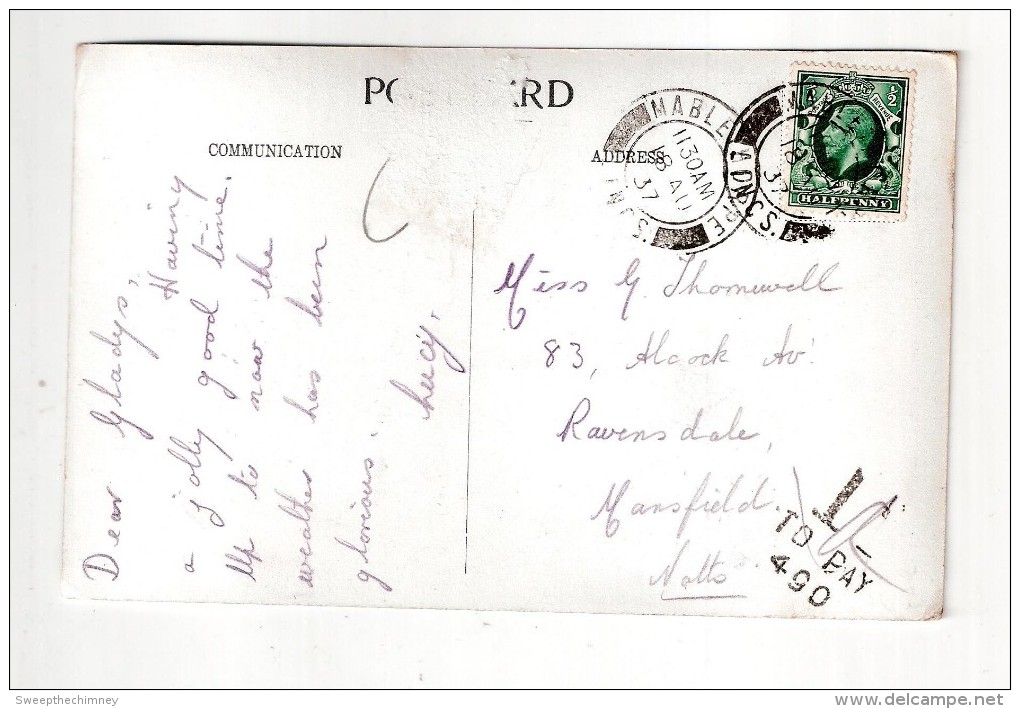 POSTCARD
COMMUNICATION
ADDRESS
Dear Gladys,
Having
a jolly good time.
Up to now the
weather has been
glorious.
Lucy.
Miss G. Thomuwell
83, Alcock Av:
Ravensdale,
Mansfield.
Notts
MABLETHORPE
LINCS.
1130AM
18 AU
37
LINCS.
18
37
½
½
HALFPENNY
1D
TO PAY
490
Sweepthechimney
delcampe.net